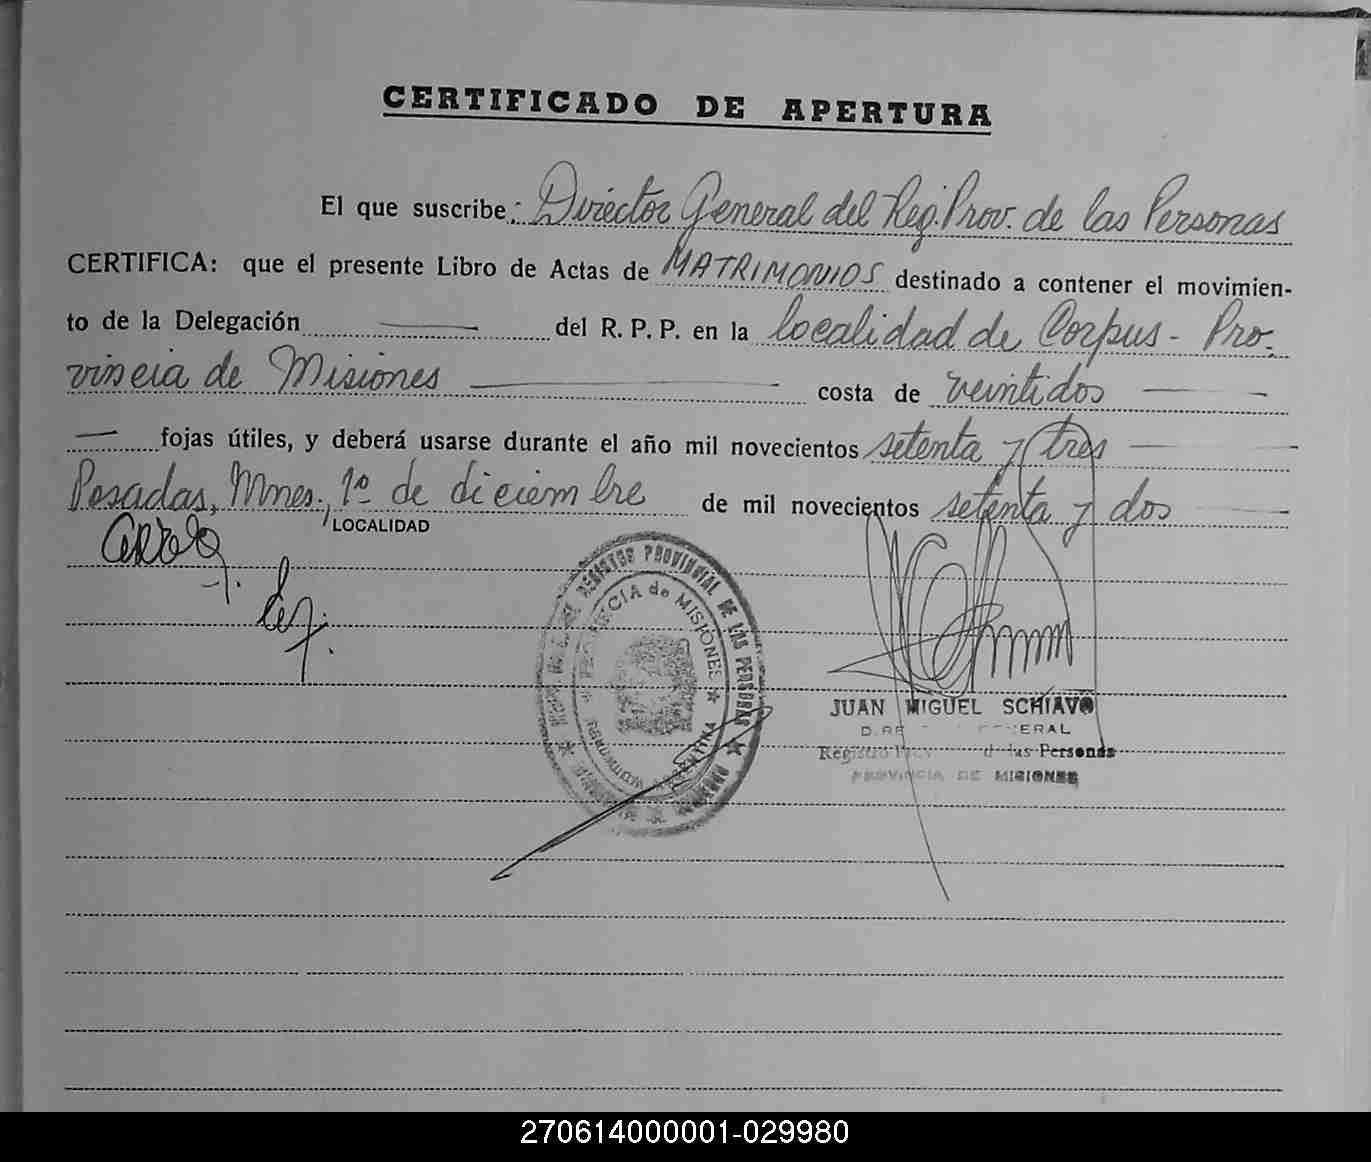 CERTIFICADO DE APERTURA
El que suscribe: Director General del Reg. Prov. de las Personas
CERTIFICA: que el presente Libro de Actas de MATRIMONIOS destinado a contener el movimien-
to de la Delegación del R. P. P. en la localidad de Corpus - Pro-
vincia de Misiones costa de veintidos
fojas útiles, y deberá usarse durante el año mil novecientos setenta y tres
Posadas, Mnes., 1º de diciembre de mil novecientos setenta y dos
LOCALIDAD
REGISTRO PROVINCIAL DE LAS PERSONAS
PROVINCIA de MISIONES
REPUBLICA ARGENTINA
JUAN MIGUEL SCHIAVO
Registro de las Personas
PROVINCIA DE MISIONES
270614000001-029980